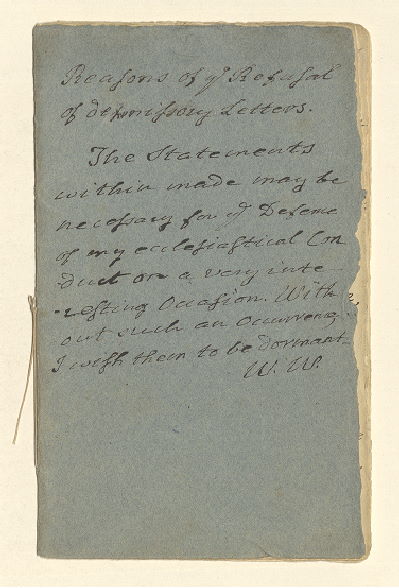 Reasons of yͤ Refusal
of demissory Letters.
The Statements
within made may be
necessary for yͤ Defence
of my ecclesiastical Con
duct on a very inte
resting Occasion. With
out such an Occurrence
I wish them to be dormant.
W. W.